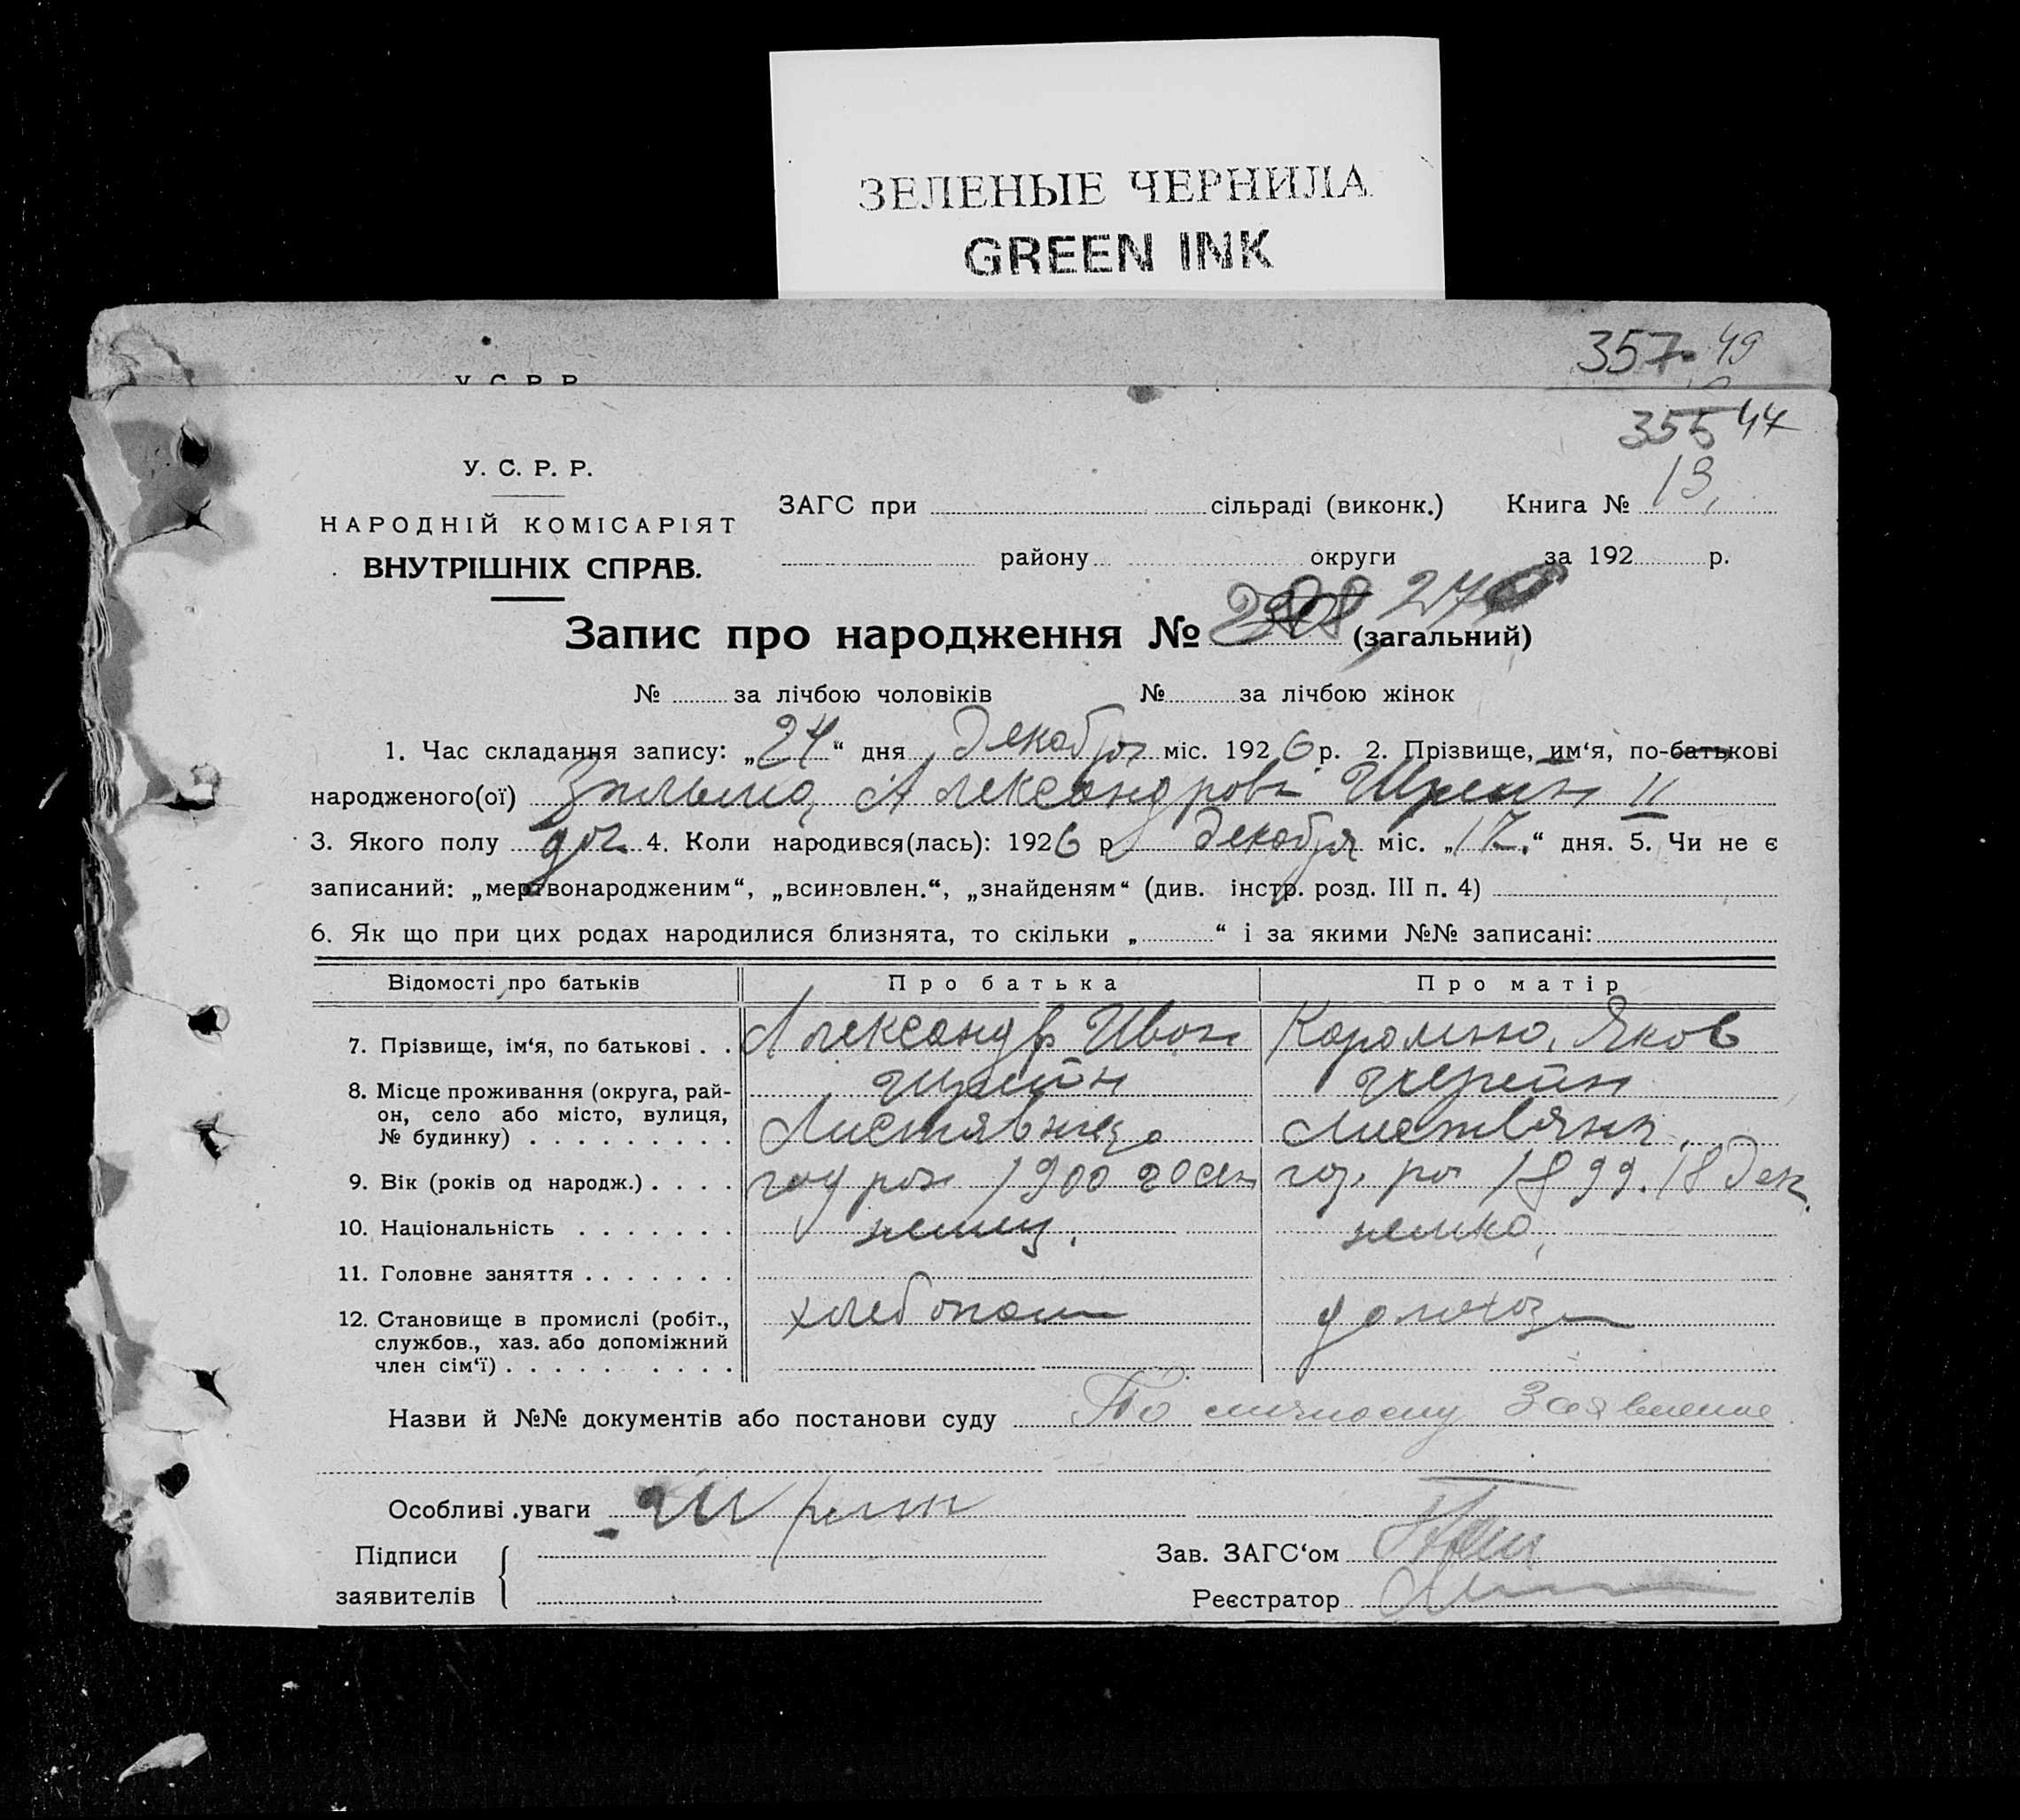 ЗЕЛЕНЫЕ ЧЕРНИЛА
GREEN INK
357 49
У. С. Р. Р.
355 47
У. С. Р. Р.
НАРОДНІЙ КОМІСАРІЯТ
ВНУТРІШНІХ СПРАВ.
ЗАГС при сільраді (виконк.) Книга № 13,
району округи за 192 р.
Запис про народження № 274 (загальний)
№ за лічбою чоловіків № за лічбою жінок
1. Час складання запису: „24“ дня Декабря міс. 1926 р. 2. Прізвище, им‘я, по-батькові
народженого(ої) Зильма, Александров Шрейн II
3. Якого полу доч 4. Коли народився(лась): 1926 р декабря міс. „17.“ дня. 5. Чи не є
записаний: „мертвонародженим“, „всиновлен.“, „знайденям“ (див. інстр. розд. III п. 4)
6. Як що при цих родах народилися близнята, то скільки „ “ і за якими №№ записані:
Відомості про батьків Про батька Про матір
7. Прізвище, ім‘я, по батькові . . Александр Иван Каролина, Яков
Шрейн Шрейн
8. Місце проживання (округа, рай-
он, село або місто, вулиця,
№ будинку) . . . . . . . . .
9. Вік (років од народж.) . . . . год рож 1900 20 сен год. ро 1899. 18 Дек.
10. Національність . . . . . . . немец. немка,
11. Головне заняття . . . . . . .
12. Становище в промислі (робіт., хлебопаш домохоз
службов., хаз. або допоміжний
член сім‘ї) . . . . . . . . . .
Назви й №№ документів або постанови суду По личному Заявление
Особливі уваги Шрейн
Підписи
заявителів
Зав. ЗАГС‘ом
Реєстратор